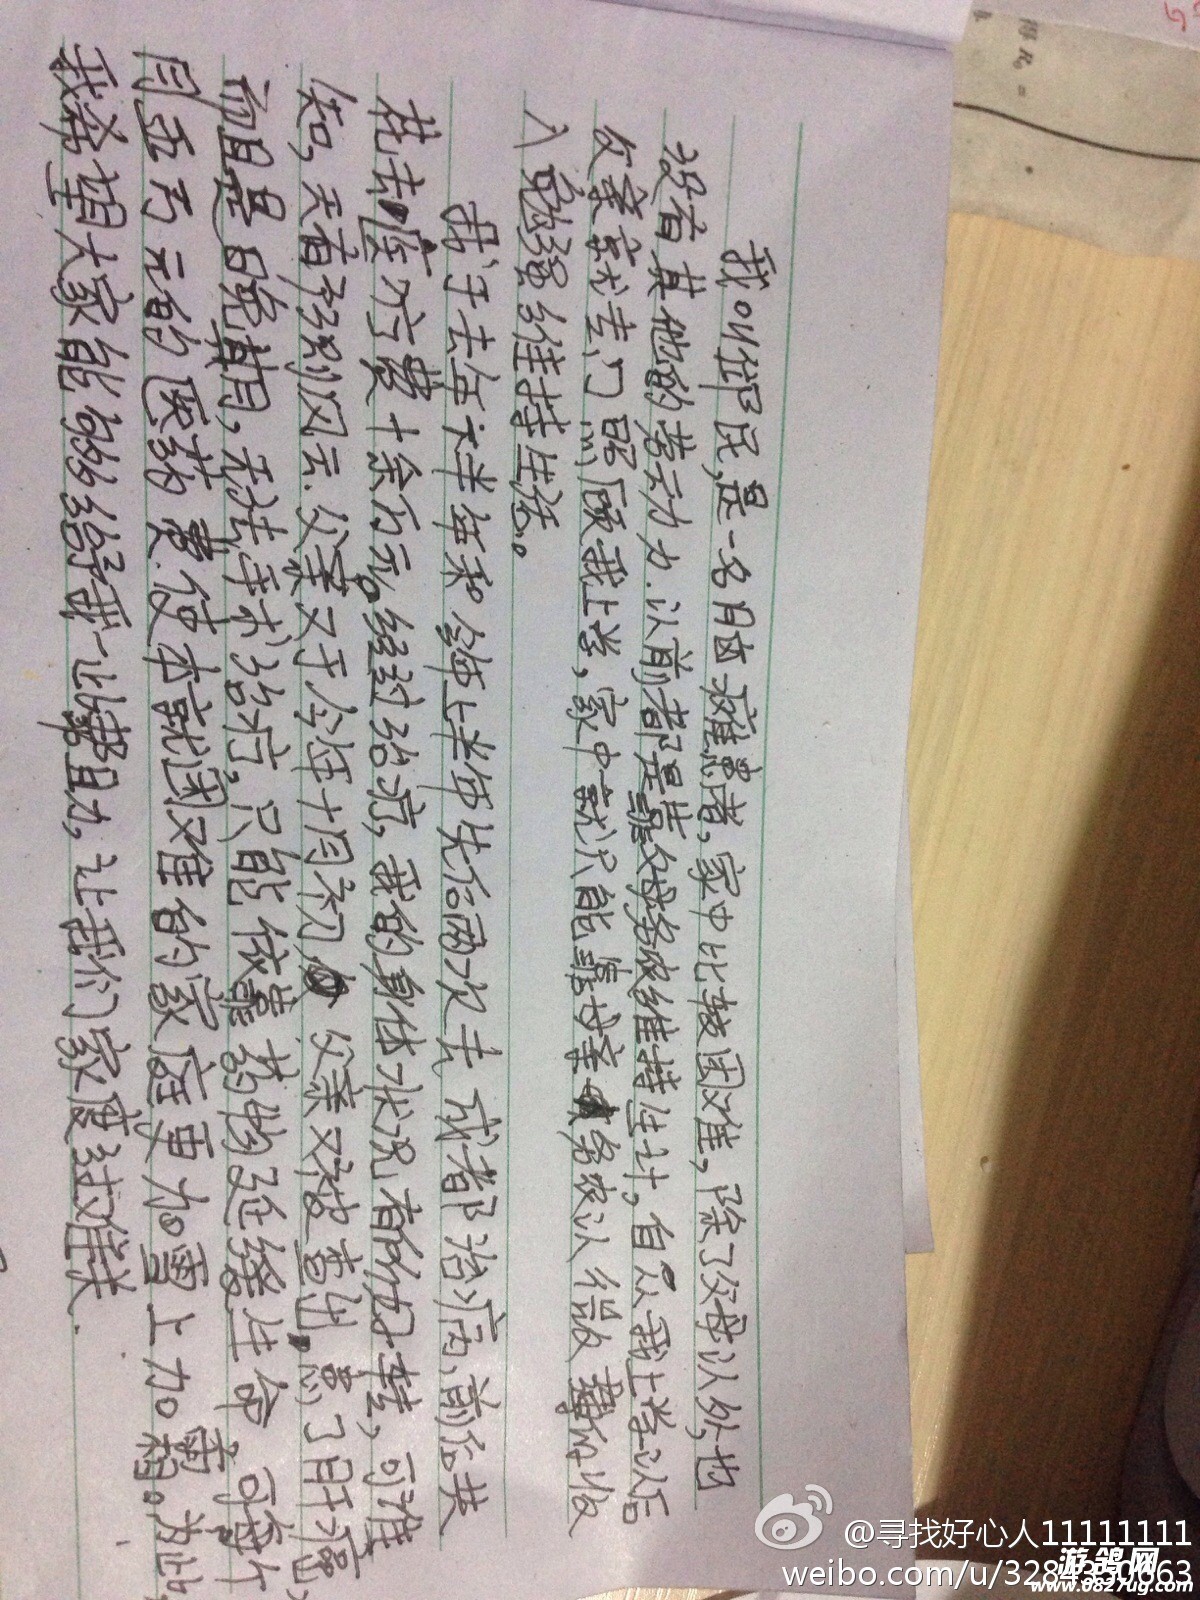 我叫邹民,是一名脑瘫患者,家中比较困难,除了父母以外,也
没有其他的劳动力.以前都是靠父母务农维持生计,自从我上学以后
父亲就专门照顾我上学,家中就只能靠母亲务农以微薄的收
入勉强维持生活。
我于去年下半年和今年上半年先后两次去成都治病,前后共
花去医疗费十余万元。经过治疗,我的身体状况有所好转,可谁
知,天有不测风云.父亲又于今年十月初父亲又被查出,患了肝癌,
而且是晚期,无法手术治疗,只能依靠药物延缓生命,可每个
月五万元的医药费.使本就困难的家庭更加雪上加霜。为此
我希望大家能够给予一点帮助,让我们家度过难关.
得 R₀ =
@寻找好心人11111111
weibo.com/u/3284350663
游鸽网
www.0827ug.com